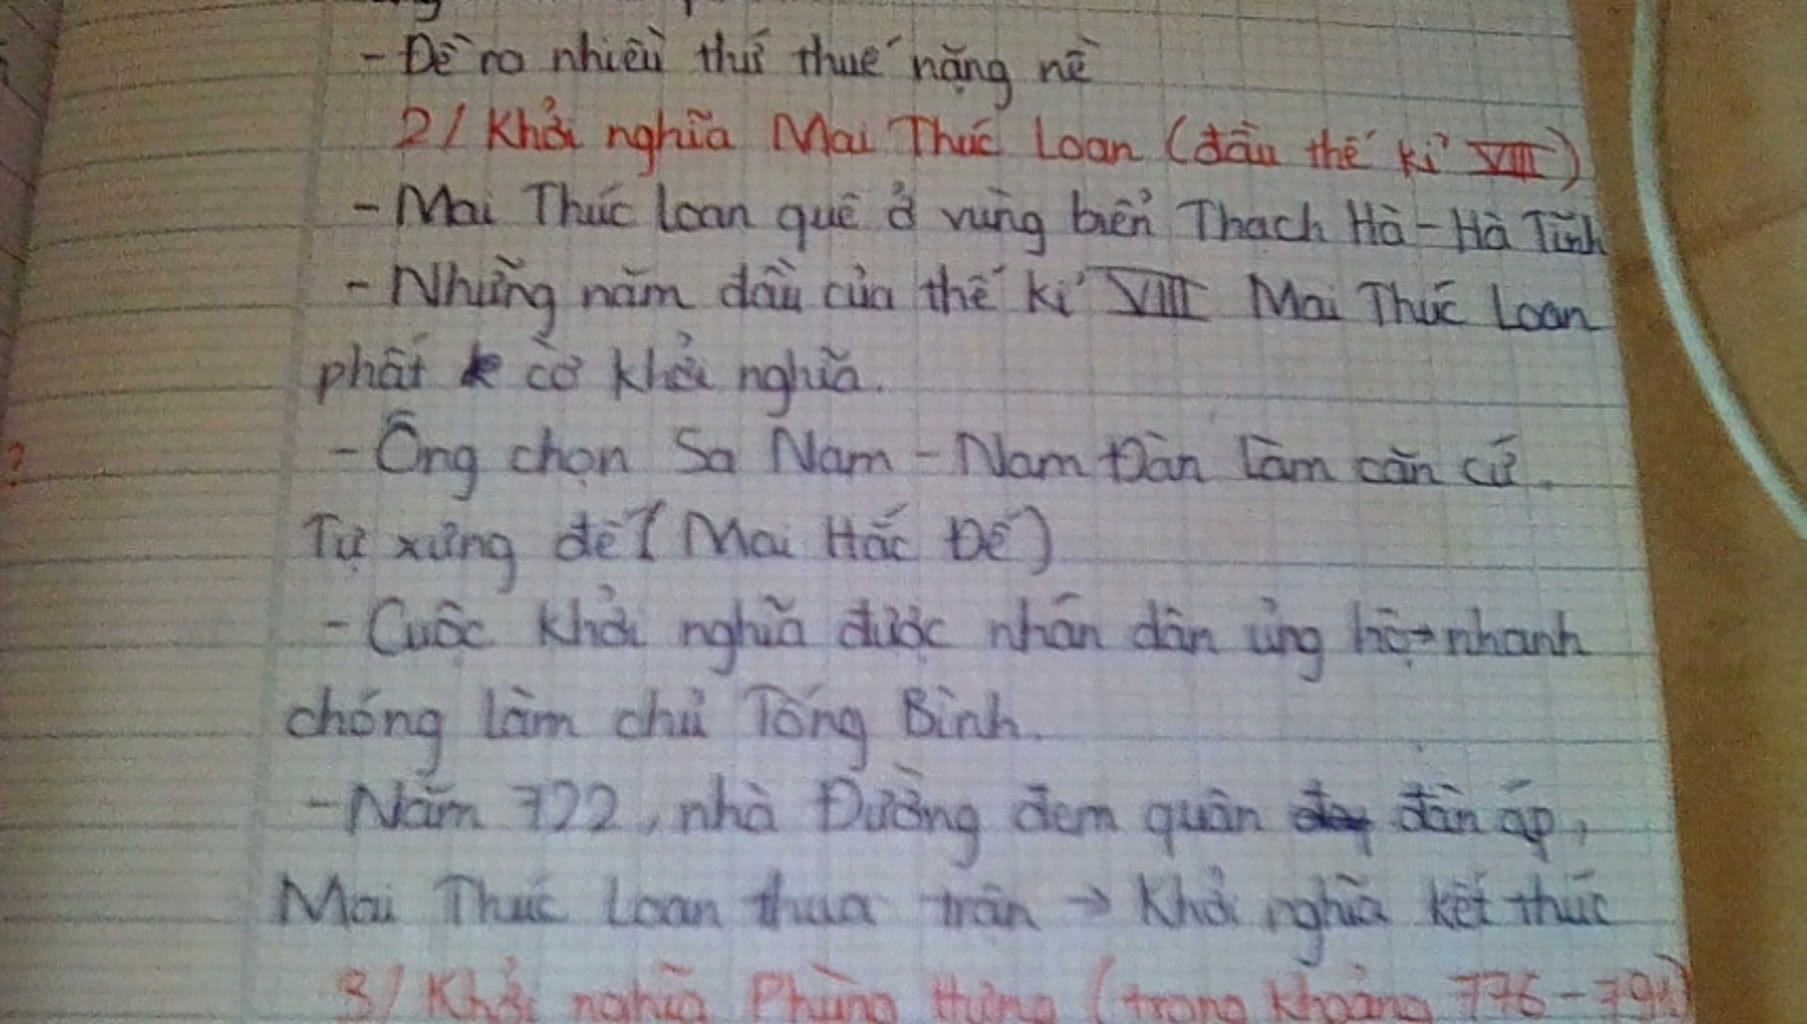 - Đề ra nhiều thứ thuế nặng nề
2/ Khởi nghĩa Mai Thúc Loan (đầu thế kỉ VIII)
- Mai Thúc Loan quê ở vùng biển Thạch Hà - Hà Tĩnh
- Những năm đầu của thế kỉ VIII Mai Thúc Loan
phất cờ khởi nghĩa.
- Ông chọn Sa Nam - Nam Đàn làm căn cứ.
Tự xưng đế (Mai Hắc Đế)
- Cuộc khởi nghĩa được nhân dân ủng hộ → nhanh
chóng làm chủ Tống Bình.
- Năm 722, nhà Đường đem quân đàn áp,
Mai Thúc Loan thua trận → Khởi nghĩa kết thúc
3/ Khởi nghĩa Phùng Hưng (trong khoảng 776 - 791)
?